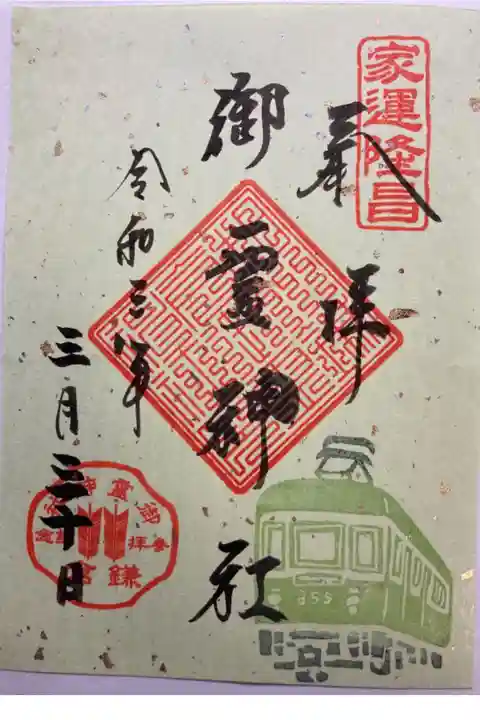 家運隆昌
奉拝
御霊神社
令和三年
三月三十日
御霊神社
参拝
鎌倉
355